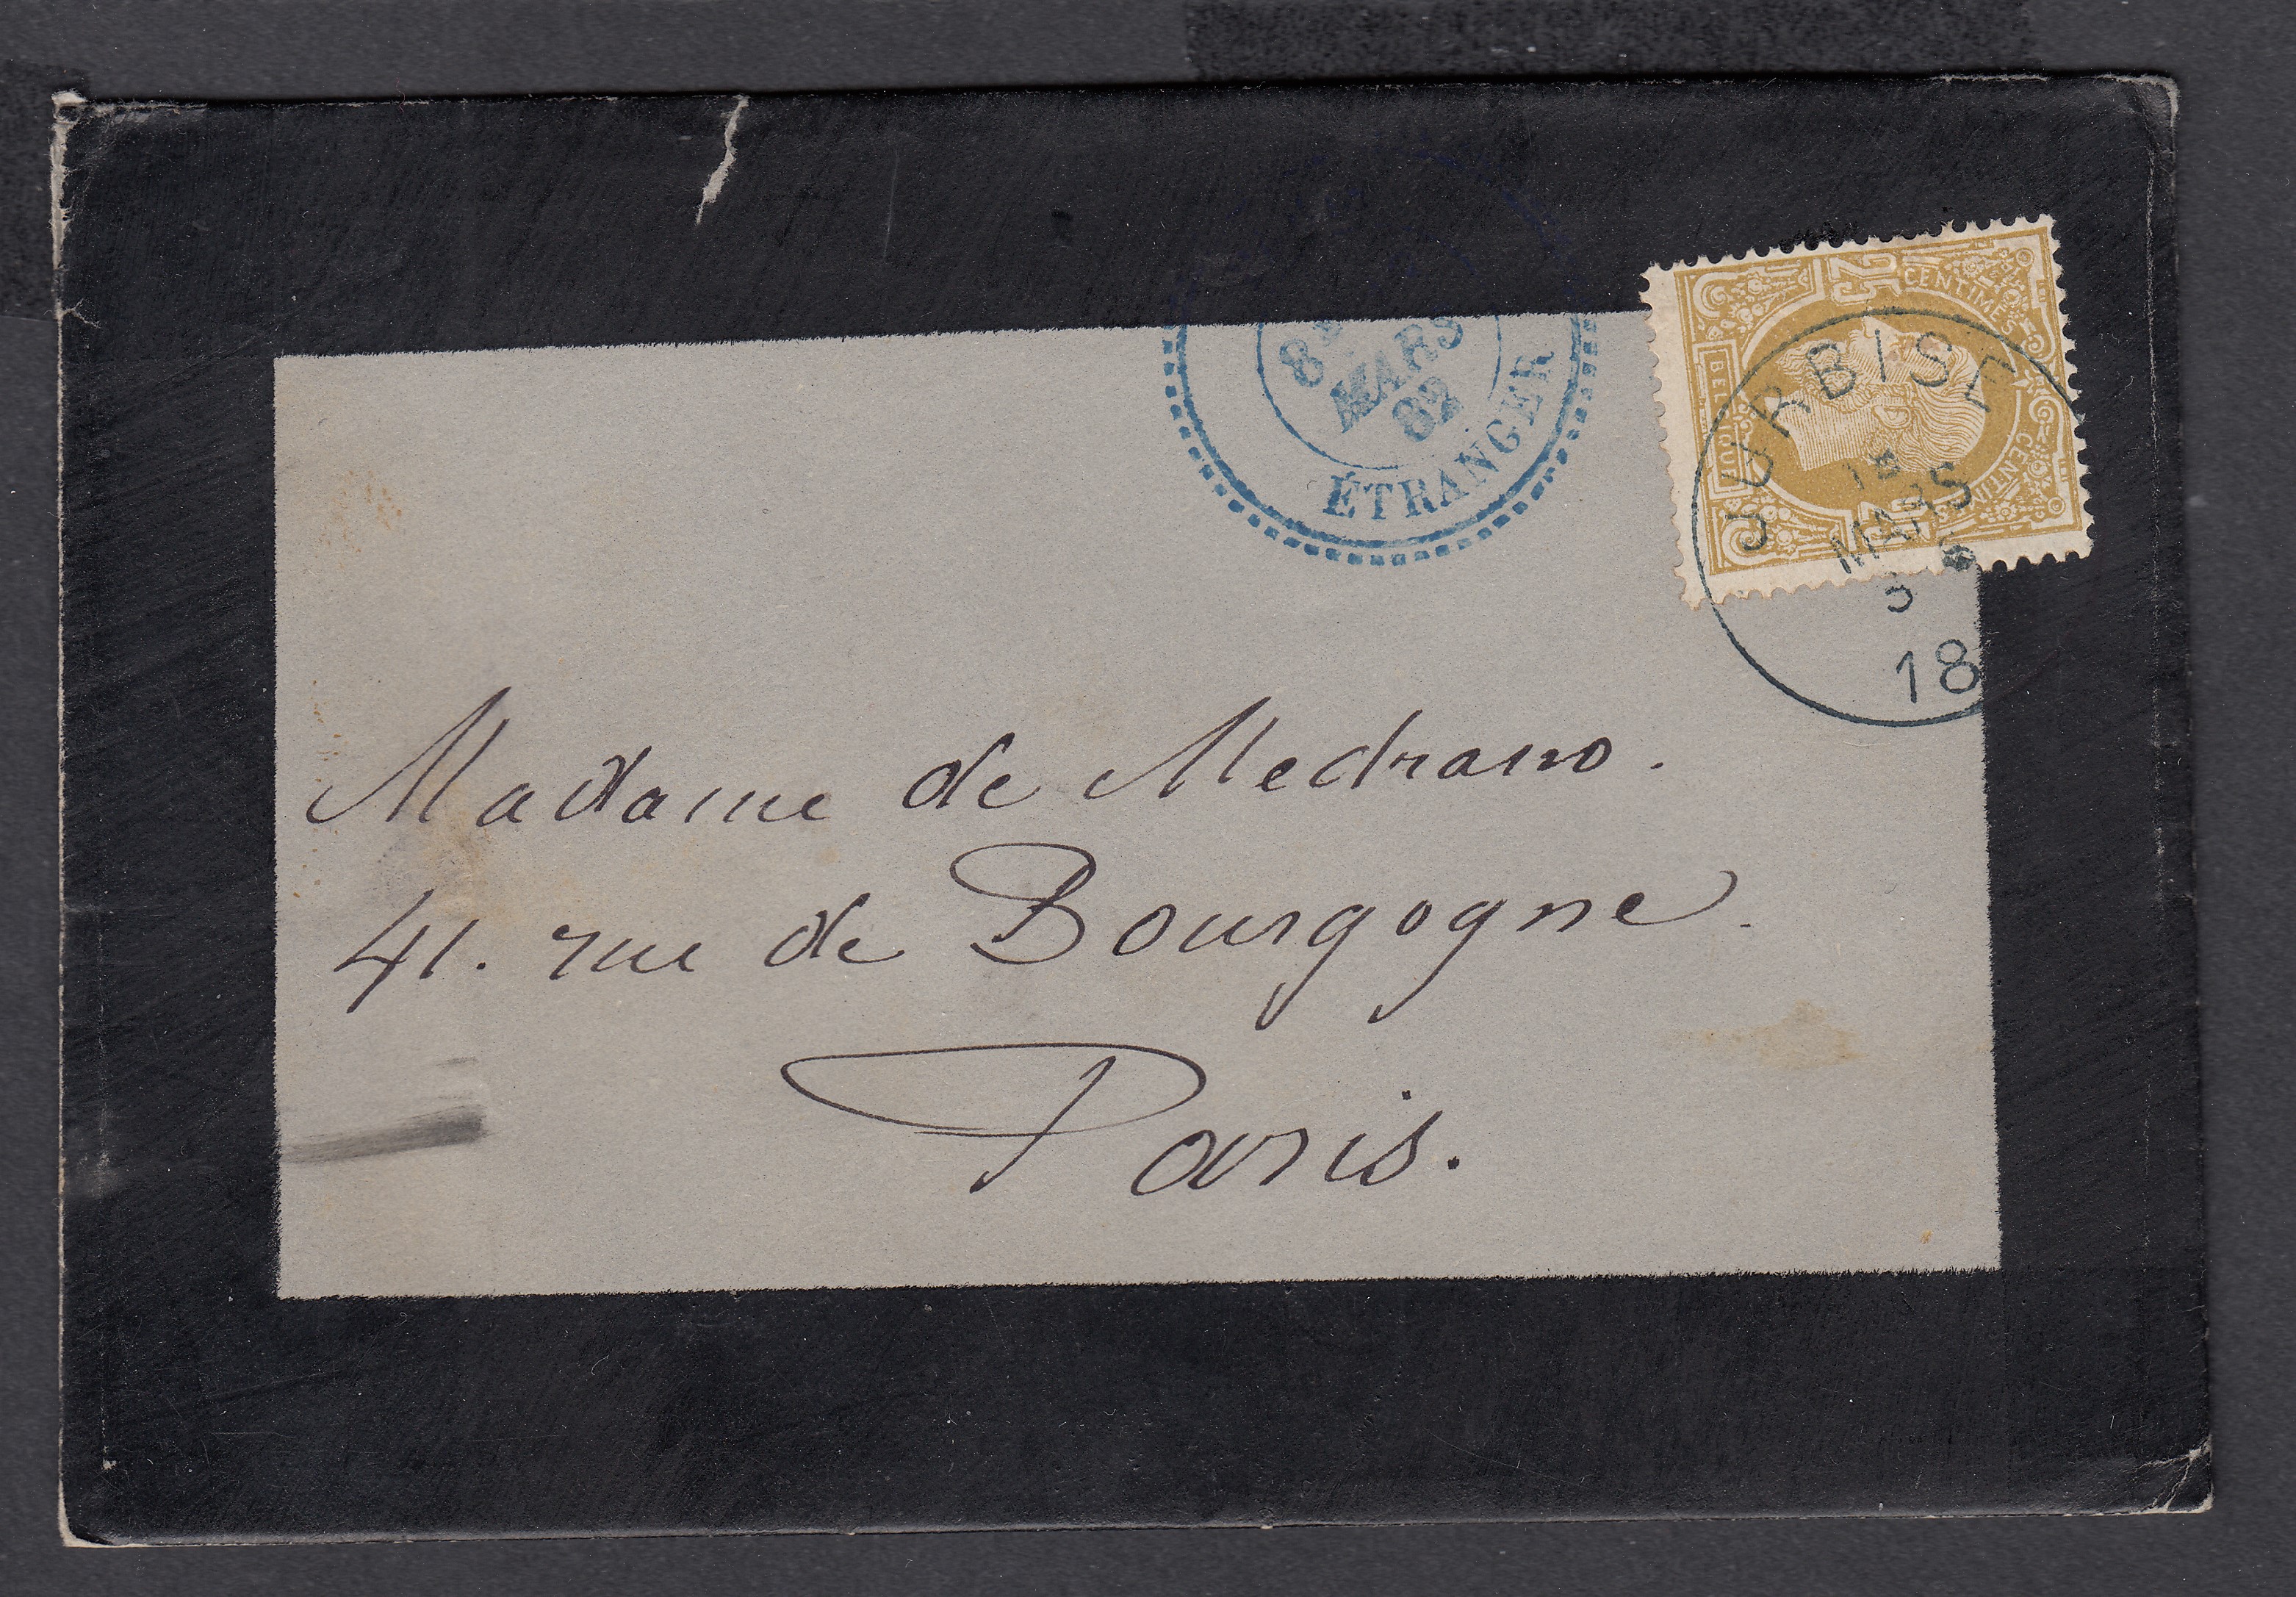 8E
MARS
82
ÉTRANGER
25
CENTIMES
BELGIQUE
JURBISE
MARS
18
Madame de Medrano.
41. rue de Bourgogne.
Paris.